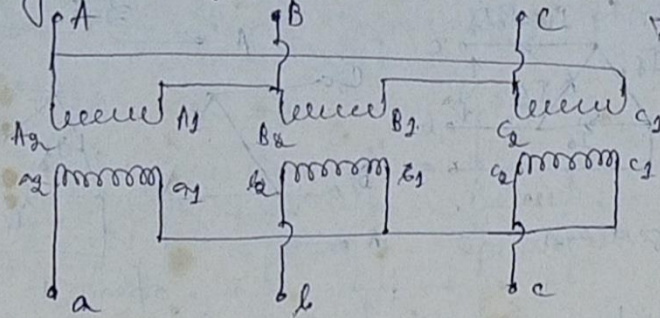 A B C
A2 A1 B2 B1 C2 C1
a2 a1 b2 b1 c2 c1
a b c